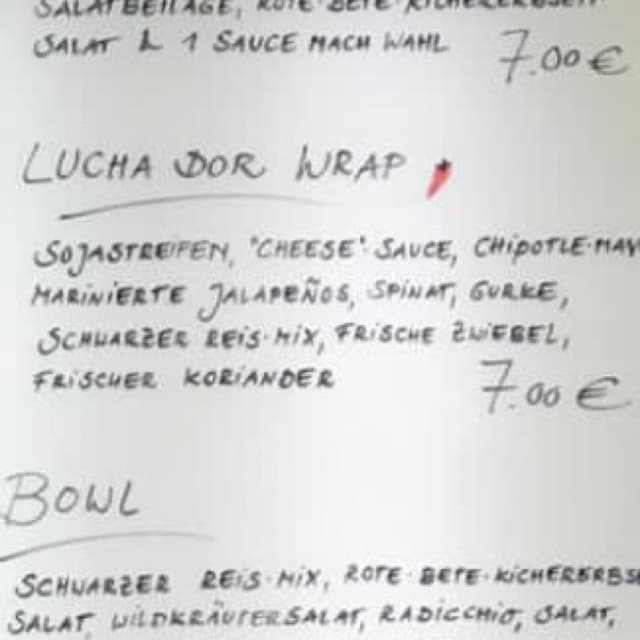 SALATBEILAGE, ROTE-BETE-KICHERERBSEN-
SALAT & 1 SAUCE NACH WAHL
7.00 €
LUCHA DOR WRAP
SOJASTREIFEN, "CHEESE" SAUCE, CHIPOTLE-MAY
MARINIERTE JALAPEÑOS, SPINAT, GURKE,
SCHWARZER REIS-MIX, FRISCHE ZWIEBEL,
FRISCHER KORIANDER
7.00 €
BOWL
SCHWARZER REIS-MIX, ROTE-BETE-KICHERERBSE
SALAT, WILDKRÄUTERSALAT, RADICCHIO, SALAT,